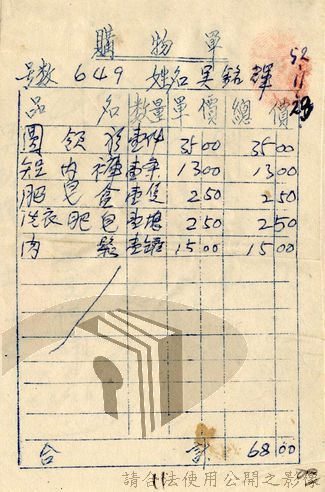 購物單
52.11.23
号数 649 姓名 吴銘輝
品名 數量 單價 總價
圓領衫 壹件 35 00 35 00
短内褲 壹条 13 00 13 00
肥皂盒 壹隻 2 50 2 50
洗衣肥皂 壹塊 2 50 2 50
肉鬆 壹罐 15 00 15 00
合計 68 00
請合法使用公開之影像